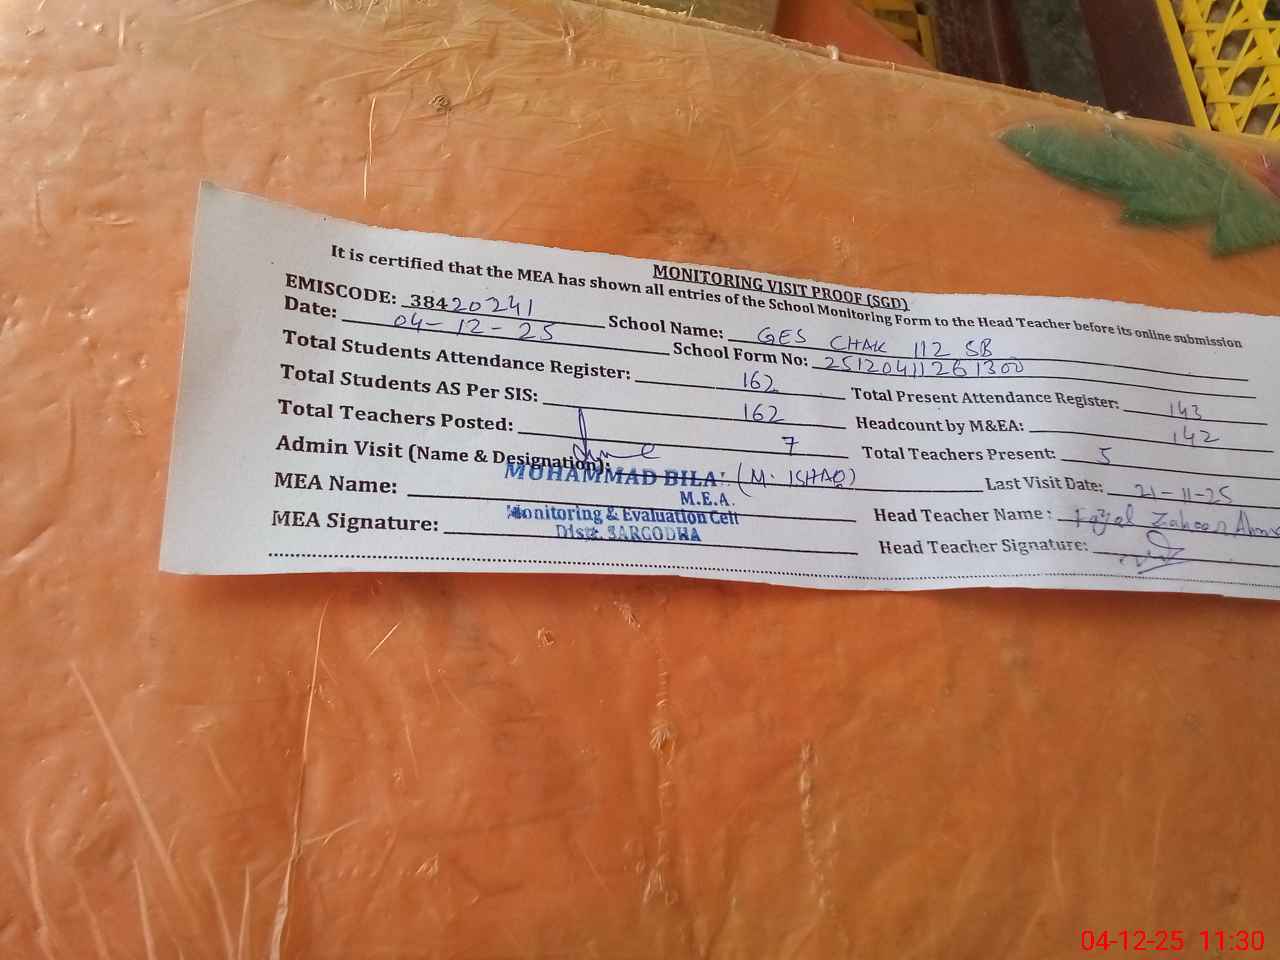 MONITORING VISIT PROOF (SGD)
It is certified that the MEA has shown all entries of the School Monitoring Form to the Head Teacher before its online submission
EMISCODE: 38420241 School Name: GES CHAK 112 SB
Date: 04-12-25 School Form No: 2512041126 1300
Total Students Attendance Register: 162 Total Present Attendance Register: 143
Total Students AS Per SIS: 162 Headcount by M&EA: 142
Total Teachers Posted: 7 Total Teachers Present: 5
Admin Visit (Name & Designation): (M. ISHAQ) Last Visit Date: 21-11-25
MUHAMMAD BILA
MEA Name: M.E.A. Head Teacher Name: Zaheer
Monitoring & Evaluation Cell
MEA Signature: Distt. SARGODHA Head Teacher Signature:
04-12-25 11:30